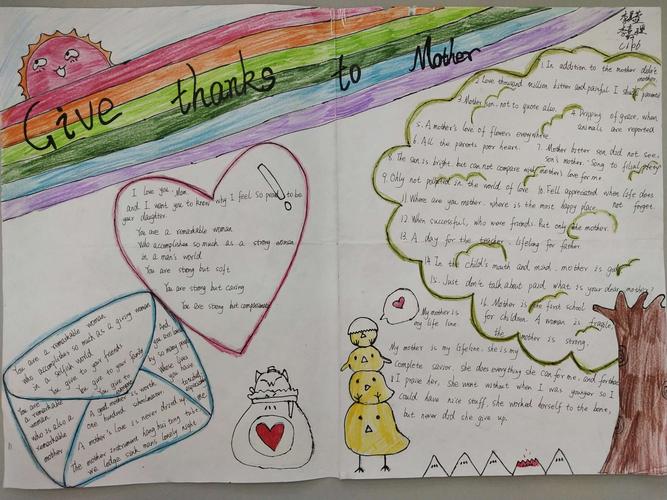 Give thanks to Mother
C1bb
I love you, Mom
and I want you to know why I feel so proud to be
your daughter.
You are a remarkable woman
Who accomplishes so much as a strong woman
in a man's world
You are strong but soft
You are strong but caring
You are strong but compassionate
You are a remarkable woman
who accomplishes so much as a giving woman
in a selfish world
You give to your friends
You give to your family
You give to
You are a remarkable woman
who is also a remarkable mother
And you are loved by so many people
Whose lives you have touched
especially me
A good mother is worth
one hundred schoolmasters
A mother's love is never dried up
The mother instrument hang
we lodge sink mans lonely night
1 In addition to the mother didn't mother.
2 Love thousand million bitter and painful I
3. Mother son, not to quote also.
4. Dripping of grace, when
animals are reported
5. A mother's love of flowers everywhere
6. All the parents poor heart.
7. Mother bitter son did not see,
son's mother. Song to filial piety
8. The sun is bright but can not compare with mother's love for me
9. Only not polluted in the world of love
10. Fell appreciated when life does
not forget.
11. Where are you mother, where is the most happy place.
12. When successful, who were friends. But only the mother.
13. A day for the teacher, lifelong for father
14. In the child's mouth and mind, mother is
15. Just don't talk about paid, what is your dear mother?
16. Mother is the first school
for children. A woman is fragile,
the mother is strong.
My mother is
my life line.
My mother is my lifeline, she is my
complete savior, she does everything she can for me, and for that
I praise her. She went without when I was younger so I
could have nice stuff, she worked herself to the bone,
but never did she give up.